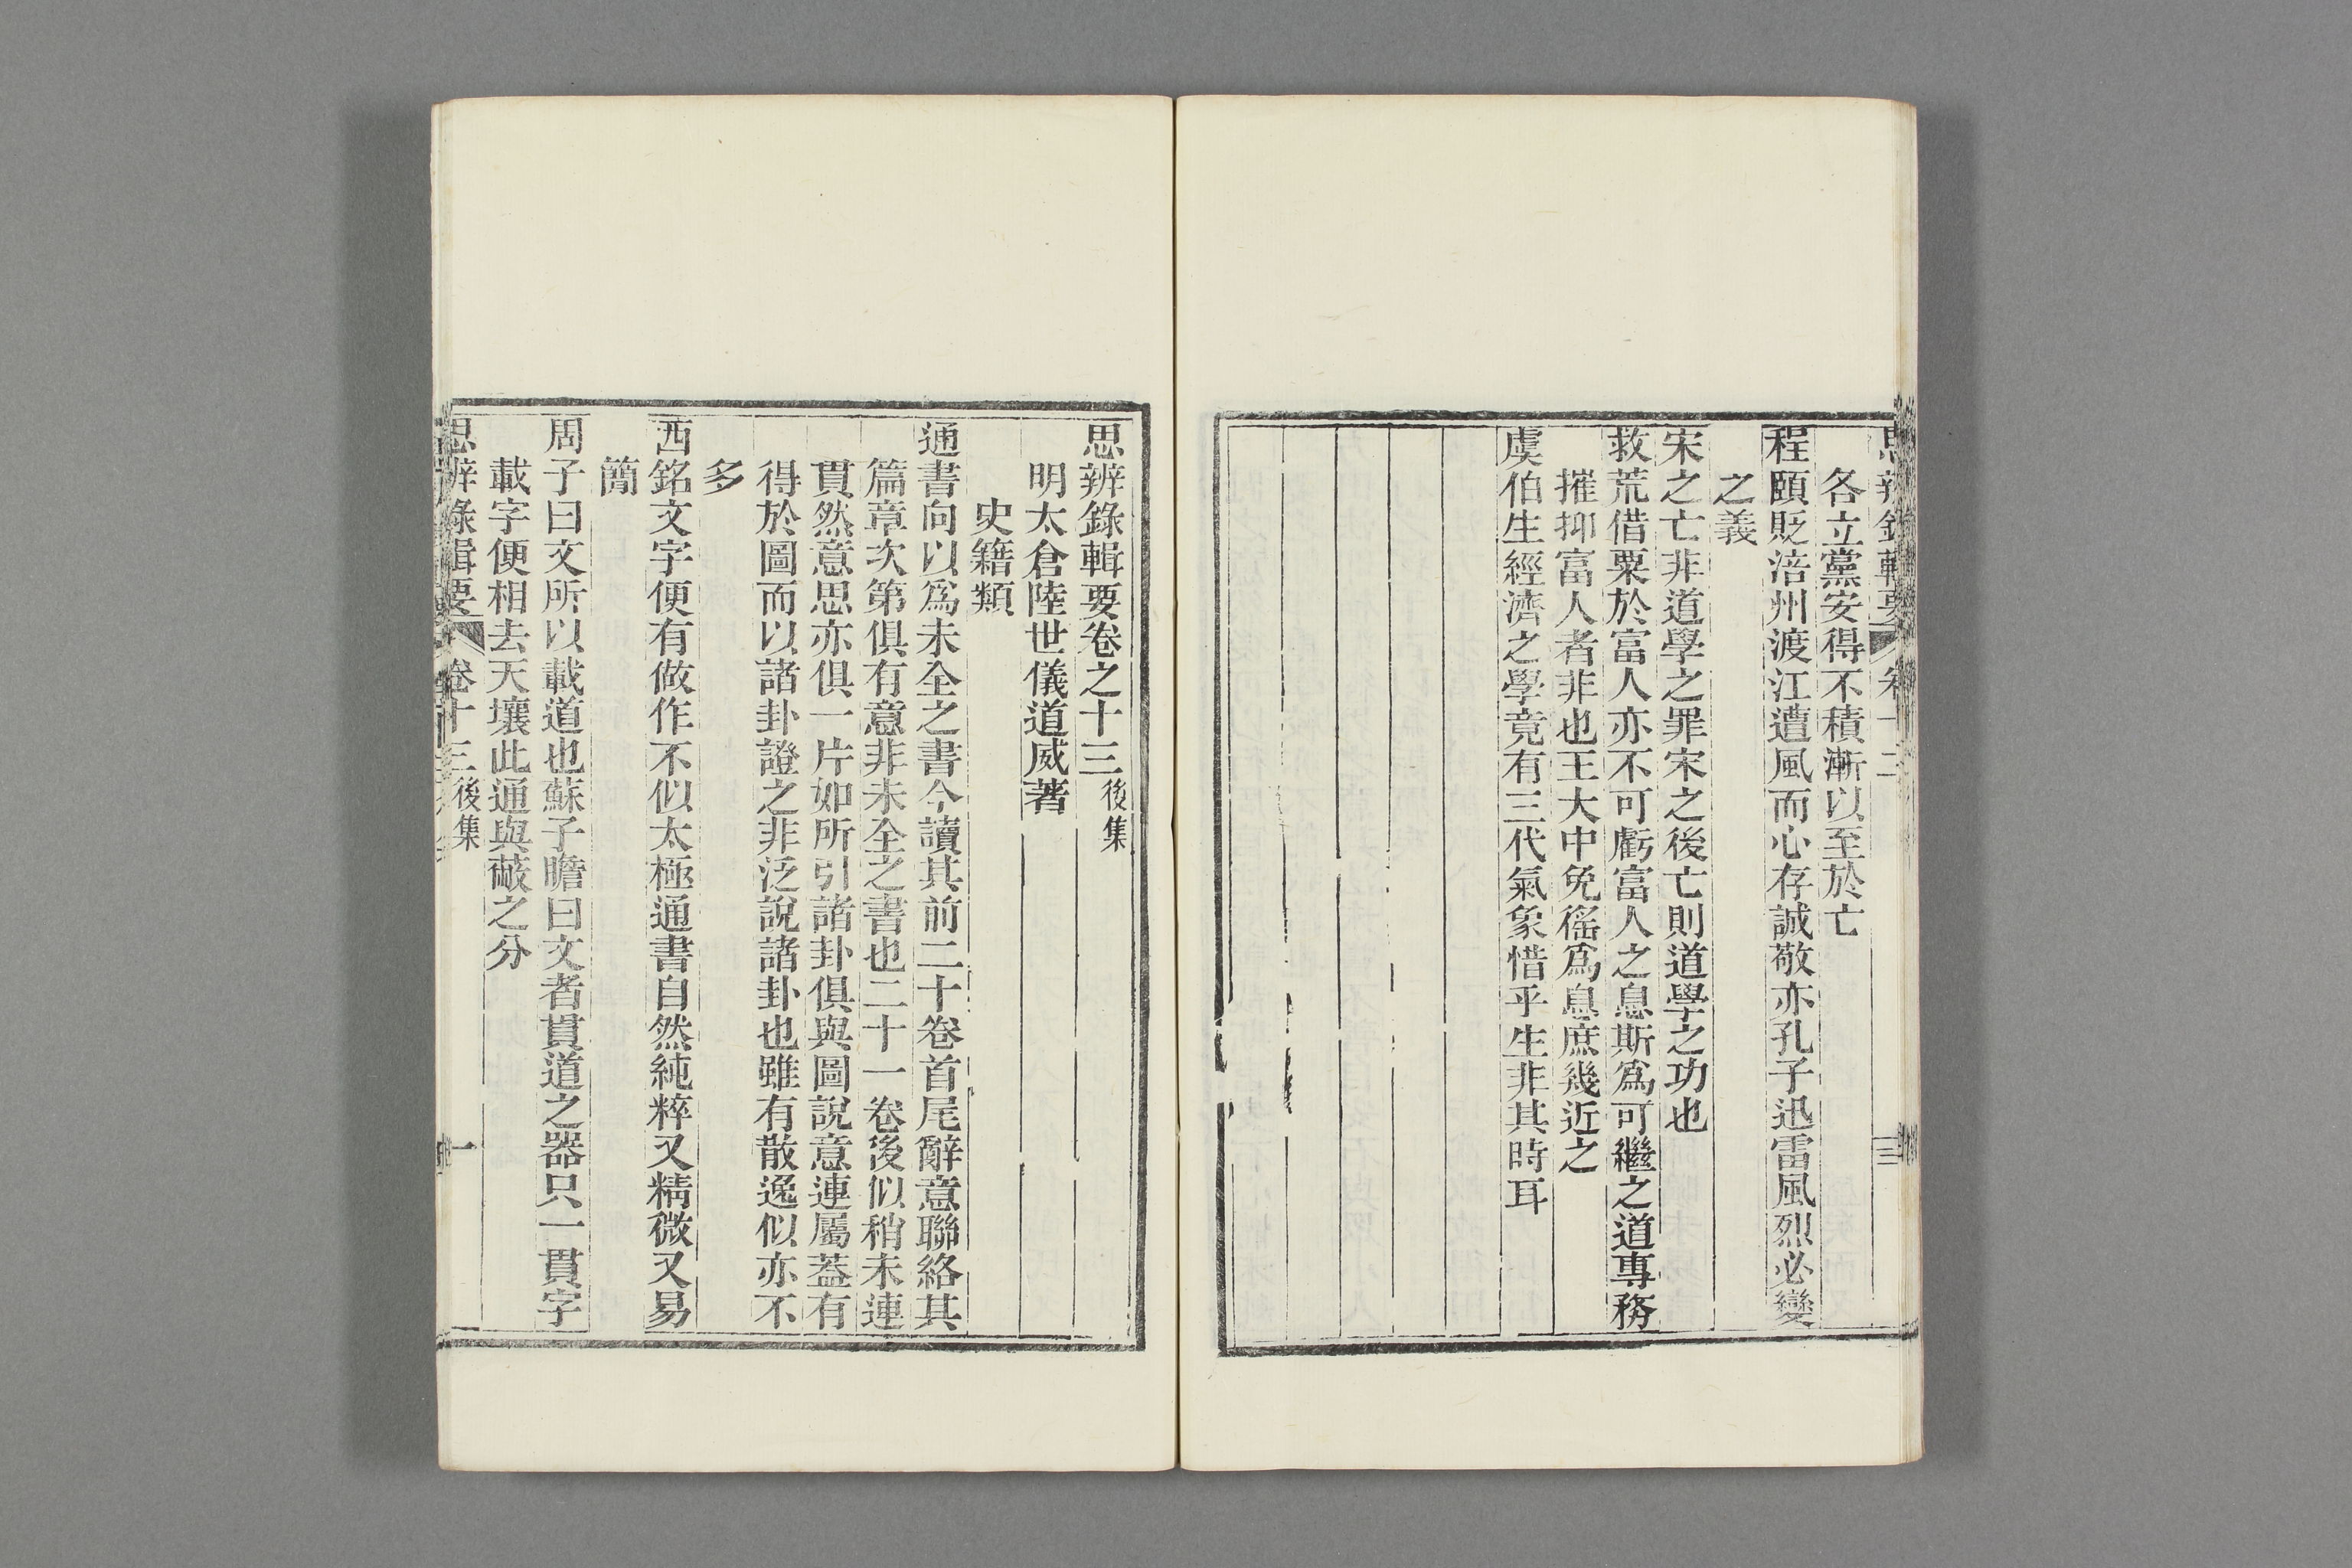 各立黨安得不積漸以至於亡
程頤貶涪州渡江遭風而心存誠敬亦孔子迅雷風烈必變
之義
宋之亡非道學之罪宋之後亡則道學之功也
救荒借粟於富人亦不可虧富人之息斯爲可繼之道專務
摧抑富人者非也王大中免徭爲息庶幾近之
虞伯生經濟之學竟有三代氣象惜乎生非其時耳
思辨錄輯要卷之十三後集
明太倉陸世儀道威著
史籍類
通書向以爲未全之書今讀其前二十卷首尾辭意聯絡其
篇章次第俱有意非未全之書也二十一卷後似稍未連
貫然意思亦俱一片如所引諸卦俱與圖說意連屬蓋有
得於圖而以諸卦證之非泛說諸卦也雖有散逸似亦不
多
西銘文字便有做作不似太極通書自然純粹又精微又易
簡
周子曰文所以載道也蘇子瞻曰文者貫道之器只一貫字
載字便相去天壤此通與蔽之分
思辨錄輯要 卷十三後集 一